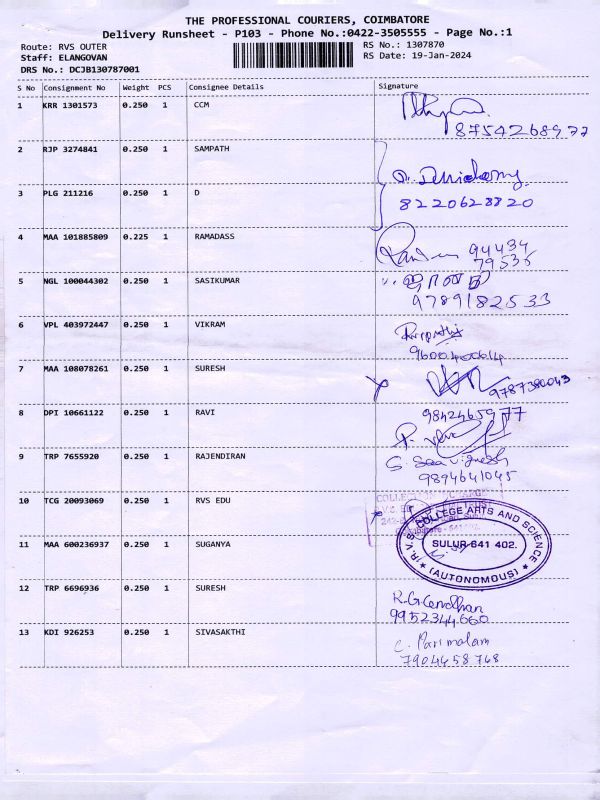 THE PROFESSIONAL COURIERS, COIMBATORE
Delivery Runsheet - P103 - Phone No.:0422-3505555 - Page No.:1
Route: RVS OUTER
RS No.: 1307870
Staff: ELANGOVAN
RS Date: 19-Jan-2024
DRS No.: DCJB130787001
S No Consignment No Weight PCS Consignee Details Signature
1 KRR 1301573 0.250 1 CCM
8754268977
2 RJP 3274841 0.250 1 SAMPATH
3 PLG 211216 0.250 1 D
8220628820
4 MAA 101885809 0.225 1 RAMADASS
94434
79535
5 NGL 100044302 0.250 1 SASIKUMAR
9789182533
6 VPL 403972447 0.250 1 VIKRAM
9600400614
7 MAA 108078261 0.250 1 SURESH
9787380043
8 DPI 10661122 0.250 1 RAVI
9842465977
9 TRP 7655920 0.250 1 RAJENDIRAN
9894641045
10 TCG 20093069 0.250 1 RVS EDU
R.V.S. COLLEGE ARTS AND SCIENCE
SULUR-641 402.
(AUTONOMOUS)
11 MAA 600236937 0.250 1 SUGANYA
12 TRP 6696936 0.250 1 SURESH
9952344660
13 KDI 926253 0.250 1 SIVASAKTHI
C. Parimalam
7904658768